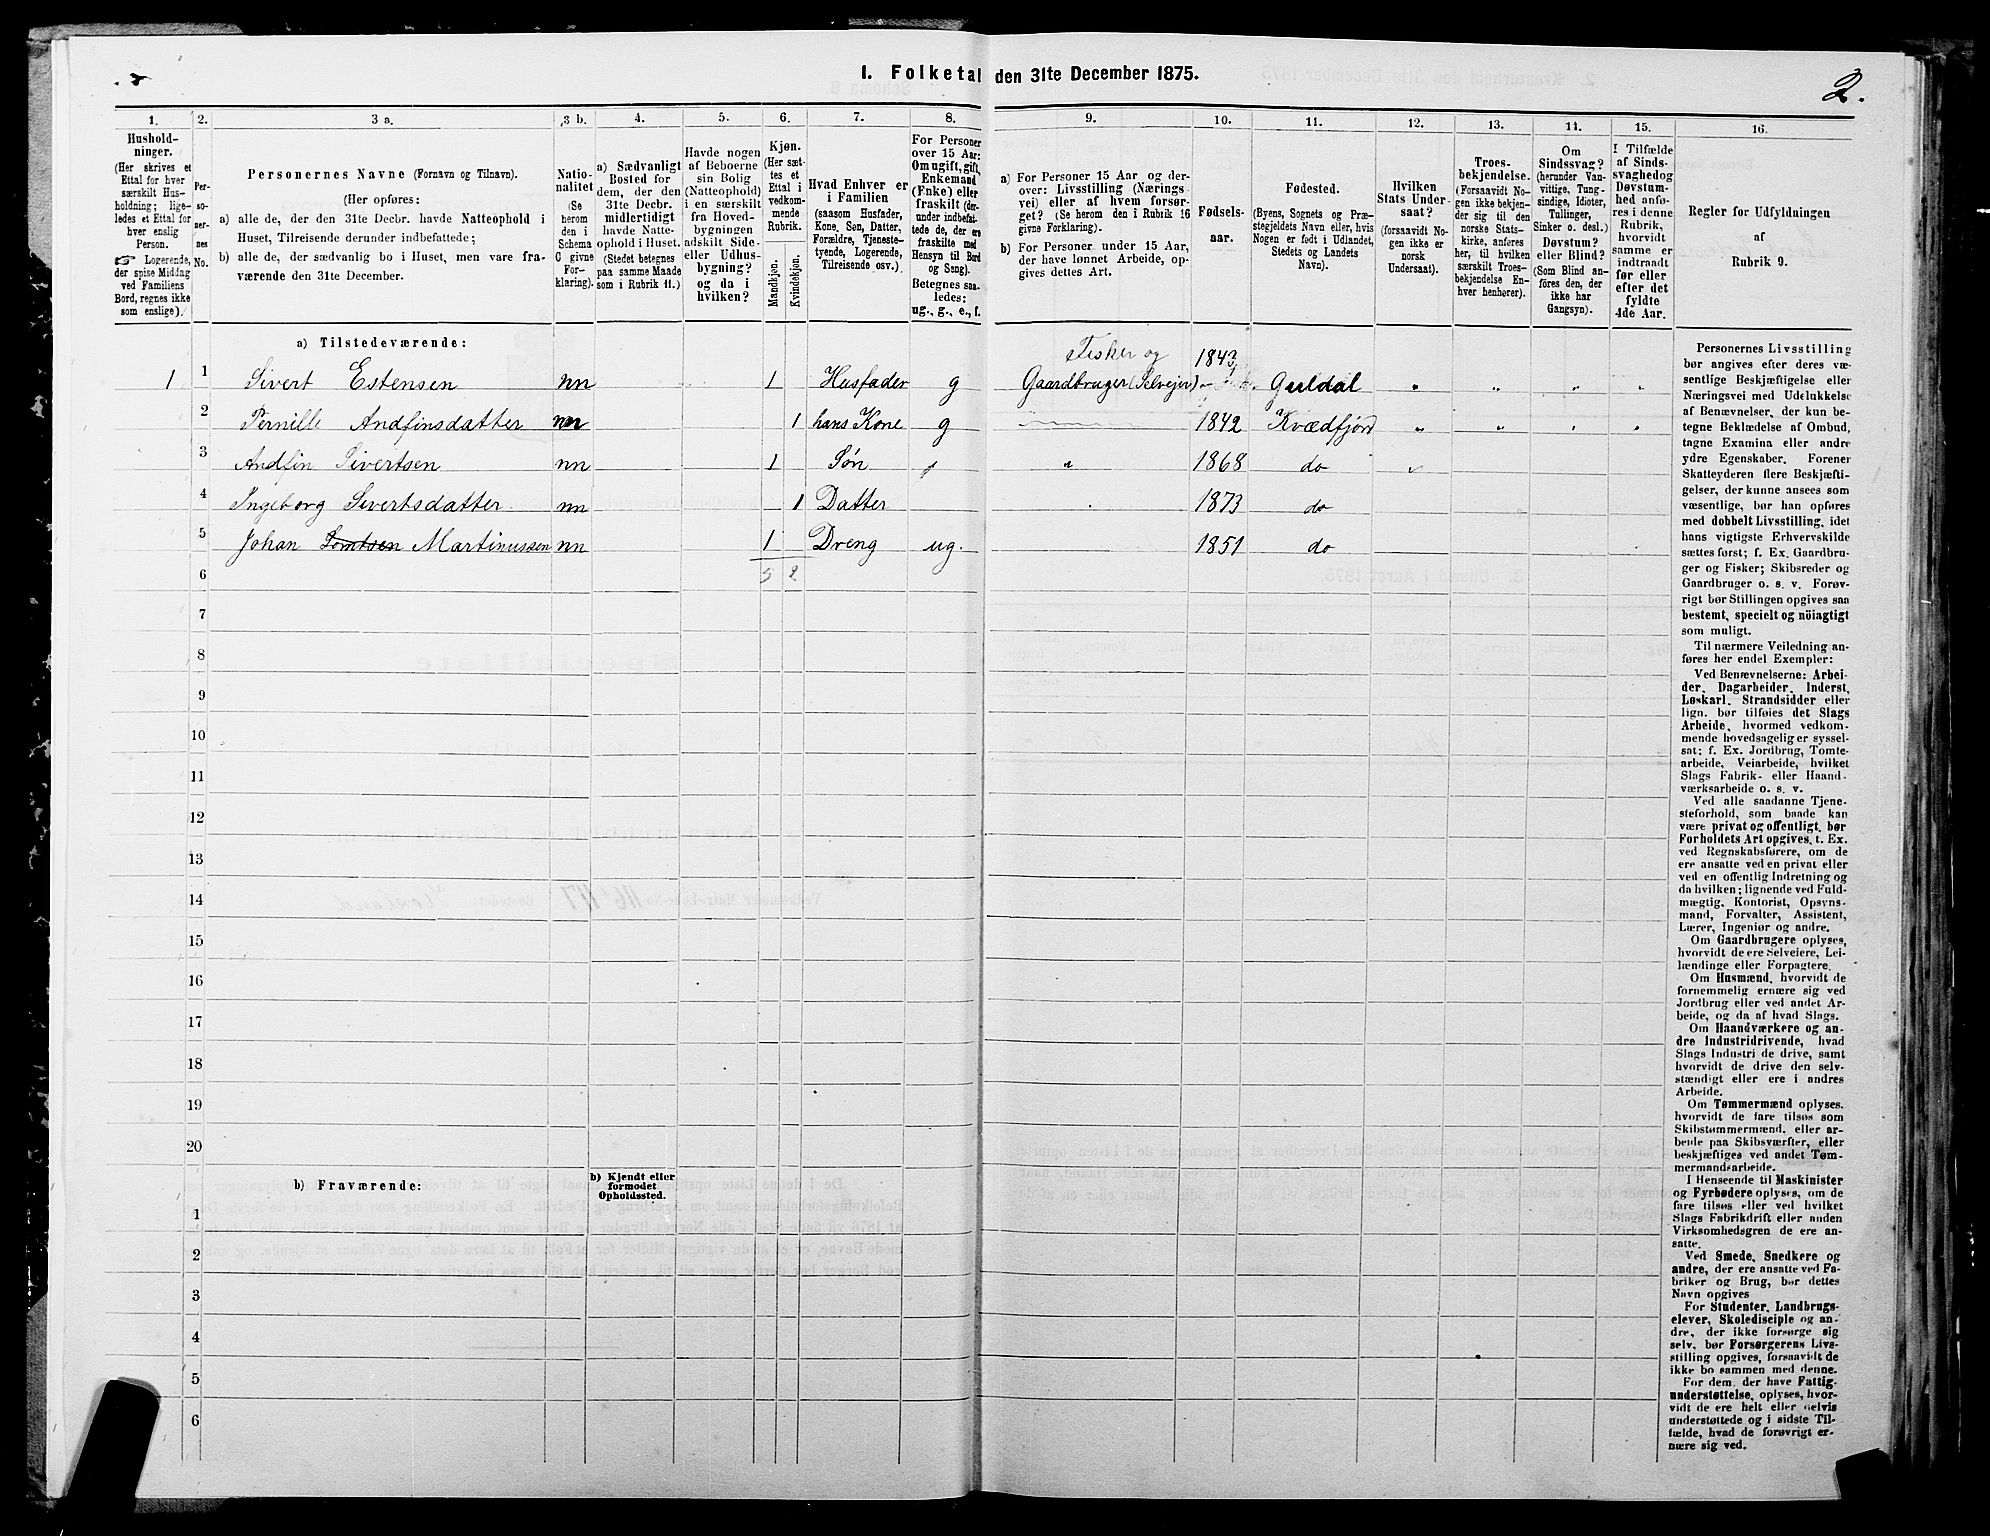 I. Folketal den 31te December 1875.
2.
1.
Hushold-
ninger.
(Her skrives et
Ettal for hver
særskilt Hus-
holdning; lige-
ledes et Ettal for
hver enslig
Person.
☞ Logerende,
der spise Middag
ved Familiens
Bord, regnes ikke
som enslige).
2.
Per-
so-
ner-
nes
No.
3 a.
Personernes Navne (Fornavn og Tilnavn).
(Her opføres:
a) alle de, der den 31te Decbr. havde Natteophold i
Huset, Tilreisende derunder indbefattede;
b) alle de, der sædvanlig bo i Huset, men vare fra-
værende den 31te December.
3 b.
Natio-
nalitet
(Se
herom
den i
Schema
C givne
For-
klaring).
4.
a) Sædvanligt
Bosted for
dem, der den
31te Decbr.
midlertidigt
havde Natte-
ophold i Huset.
(Stedet betegnes
paa samme Maade
som i Rubrik 11.)
5.
Havde nogen
af Beboerne
sin Bolig
(Natteophold)
i en særskilt
fra Hoved-
bygningen
adskilt Side-
eller Udhus-
bygning?
og da i
hvilken?
6.
Kjøn.
(Her sæt-
tes et
Ettal i
vedkom-
mende
Rubrik.
Mandkjøn.
Kvindekjøn.
7.
Hvad Enhver er
i Familien
(saasom Husfader,
Kone, Søn, Datter,
Forældre, Tjeneste-
tyende, Logerende,
Tilreisende osv.)
8.
For Personer
over 15 Aar:
Om ugift, gift,
Enkemand
(Enke) eller
fraskilt (der-
under indbefat-
tede de, der ere
fraskilte med
Hensyn til Bord
og Seng).
Betegnes saa-
ledes:
ug., g., e., f.
9.
a) For Personer 15 Aar og der-
over: Livsstilling (Nærings-
vei) eller af hvem forsør-
get? (Se herom den i Rubrik 16
givne Forklaring).
b) For Personer under 15 Aar,
der have lønnet Arbeide, op-
gives dettes Art.
10.
Fødsels-
aar.
11.
Fødested.
(Byens, Sognets og Præ-
stegjeldets Navn eller, hvis
Nogen er født i Udlandet,
Stedets og Landets
Navn).
12.
Hvilken
Stats Under-
saat?
(forsaavidt No-
gen ikke er
norsk
Undersaat).
13.
Troes-
bekjendelse.
(Forsaavidt No-
gen ikke bekjen-
der sig til den
norske Stats-
kirke, anføres
her, til hvilken
særskilt Troes-
bekjendelse En-
hver henhører).
14.
Om
Sindssvag?
(herunder Van-
vittige, Tung-
sindige, Idioter,
Tullinger,
Sinker o. desl.)
Døvstum?
eller Blind?
(Som Blind an-
føres den, der
ikke har
Gangsyn).
15.
I Tilfælde
af Sinds-
svaghed og
Døvstum-
hed anfø-
res i denne
Rubrik,
hvorvidt
samme er
indtraadt
før eller
efter det
fyldte
4de Aar.
16.
Regler for Udfyldningen
af
Rubrik 9.
a) Tilstedeværende:
1 1 Sivert Estensen nn 1 Husfader g Fisker og
Gaardbruger (Selveier) 1843 Guldal
2 Pernille Andfinsdatter nn 1 hans Kone g 1842 Kvædfjord
3 Andfin Sivertsen nn 1 Søn 1868 do
4 Ingeborg Sivertsdatter nn 1 Datter 1873 do
5 Johan Martinussen nn 1 Dreng ug. 1851 do
6 2
7
8
9
10
11
12
13
14
15
16
17
18
19
20
b) Fraværende:
b) Kjendt eller
formodet
Opholdssted.
1
2
3
4
5
6
Personernes Livsstilling
bør angives efter deres væ-
sentlige Beskjæftigelse eller
Næringsvei med Udelukkelse
af Benævnelser, der kun be-
tegne Beklædelse af Ombud,
tagne Examina eller andre
ydre Egenskaber. Forener
Skatteyderen flere Beskjæfti-
gelser, der kunne ansees som
væsentlige, bør han opføres
med dobbelt Livsstilling, idet
hans vigtigste Erhvervskilde
sættes først; f. Ex. Gaardbru-
ger og Fisker; Skibsreder og
Gaardbruger o. s. v. Forøv-
rigt bør Stillingen opgives saa
bestemt, specielt og nöiagtigt
som muligt.
Til nærmere Veiledning an-
føres her endel Exempler:
Ved Benævnelserne: Arbei-
der, Dagarbeider, Inderst,
Løskarl, Strandsidder eller
lign. bør tilføies det Slags
Arbeide, hvormed vedkom-
mende hovedsagelig er syssel-
sat; f. Ex. Jordbrug, Tomte-
arbeide, Veiarbeide, hvilket
Slags Fabrik- eller Haand-
værksarbeide o. s. v.
Ved alle saadanne Tjene-
steforhold, som baade kan
være privat og offentligt, bør
Forholdets Art opgives, t. Ex.
ved Regnskabsførere, om de
ere ansatte ved en privat eller
ved en offentlig Indretning og
da hvilken; lignende ved Fuld-
mægtig, Kontorist, Opsyns-
mand, Forvalter, Assistent,
Lærer, Ingeniør og andre.
Om Gaardbrugere oplyses,
hvorvidt de ere Selveiere, Lei-
lændinge eller Forpagtere.
Om Husmænd, hvorvidt de
fornemmelig ernære sig ved
Jordbrug eller ved andet Ar-
beide, og da af hvad Slags.
Om Haandværkere og an-
dre Industridrivende, hvad
Slags Industri de drive, samt
hvorvidt de drive den selv-
stændigt eller ere i andres
Arbeide.
Om Tømmermænd oplyses,
hvorvidt de fare tilsøs som
Skibstømmermænd, eller ar-
beide paa Skibsværfter, eller
beskjæftiges ved andet Tøm-
mermandsarbeide.
I Henseende til Maskinister
og Fyrbødere oplyses, om de
fare tilsøs eller ved hvilket
Slags Fabrikdrift eller anden
Virksomhedsgren de ere an-
satte.
Ved Smede, Snedkere og
andre, der ere ansatte ved Fa-
briker og Brug, bør dettes
Navn opgives
For Studenter, Landbrugs-
elever, Skoledisciple og an-
dre, der ikke forsørge sig
selv, bør Forsørgerens Livs-
stilling opgives, forsaavidt de
ikke bo sammen med denne.
For dem, der have Fattig-
understøttelse, oplyses, hvor-
vidt de ere helt eller delvis
understøttede og i sidste Til-
fælde, hvad de forøvrigt er-
nære sig ved.